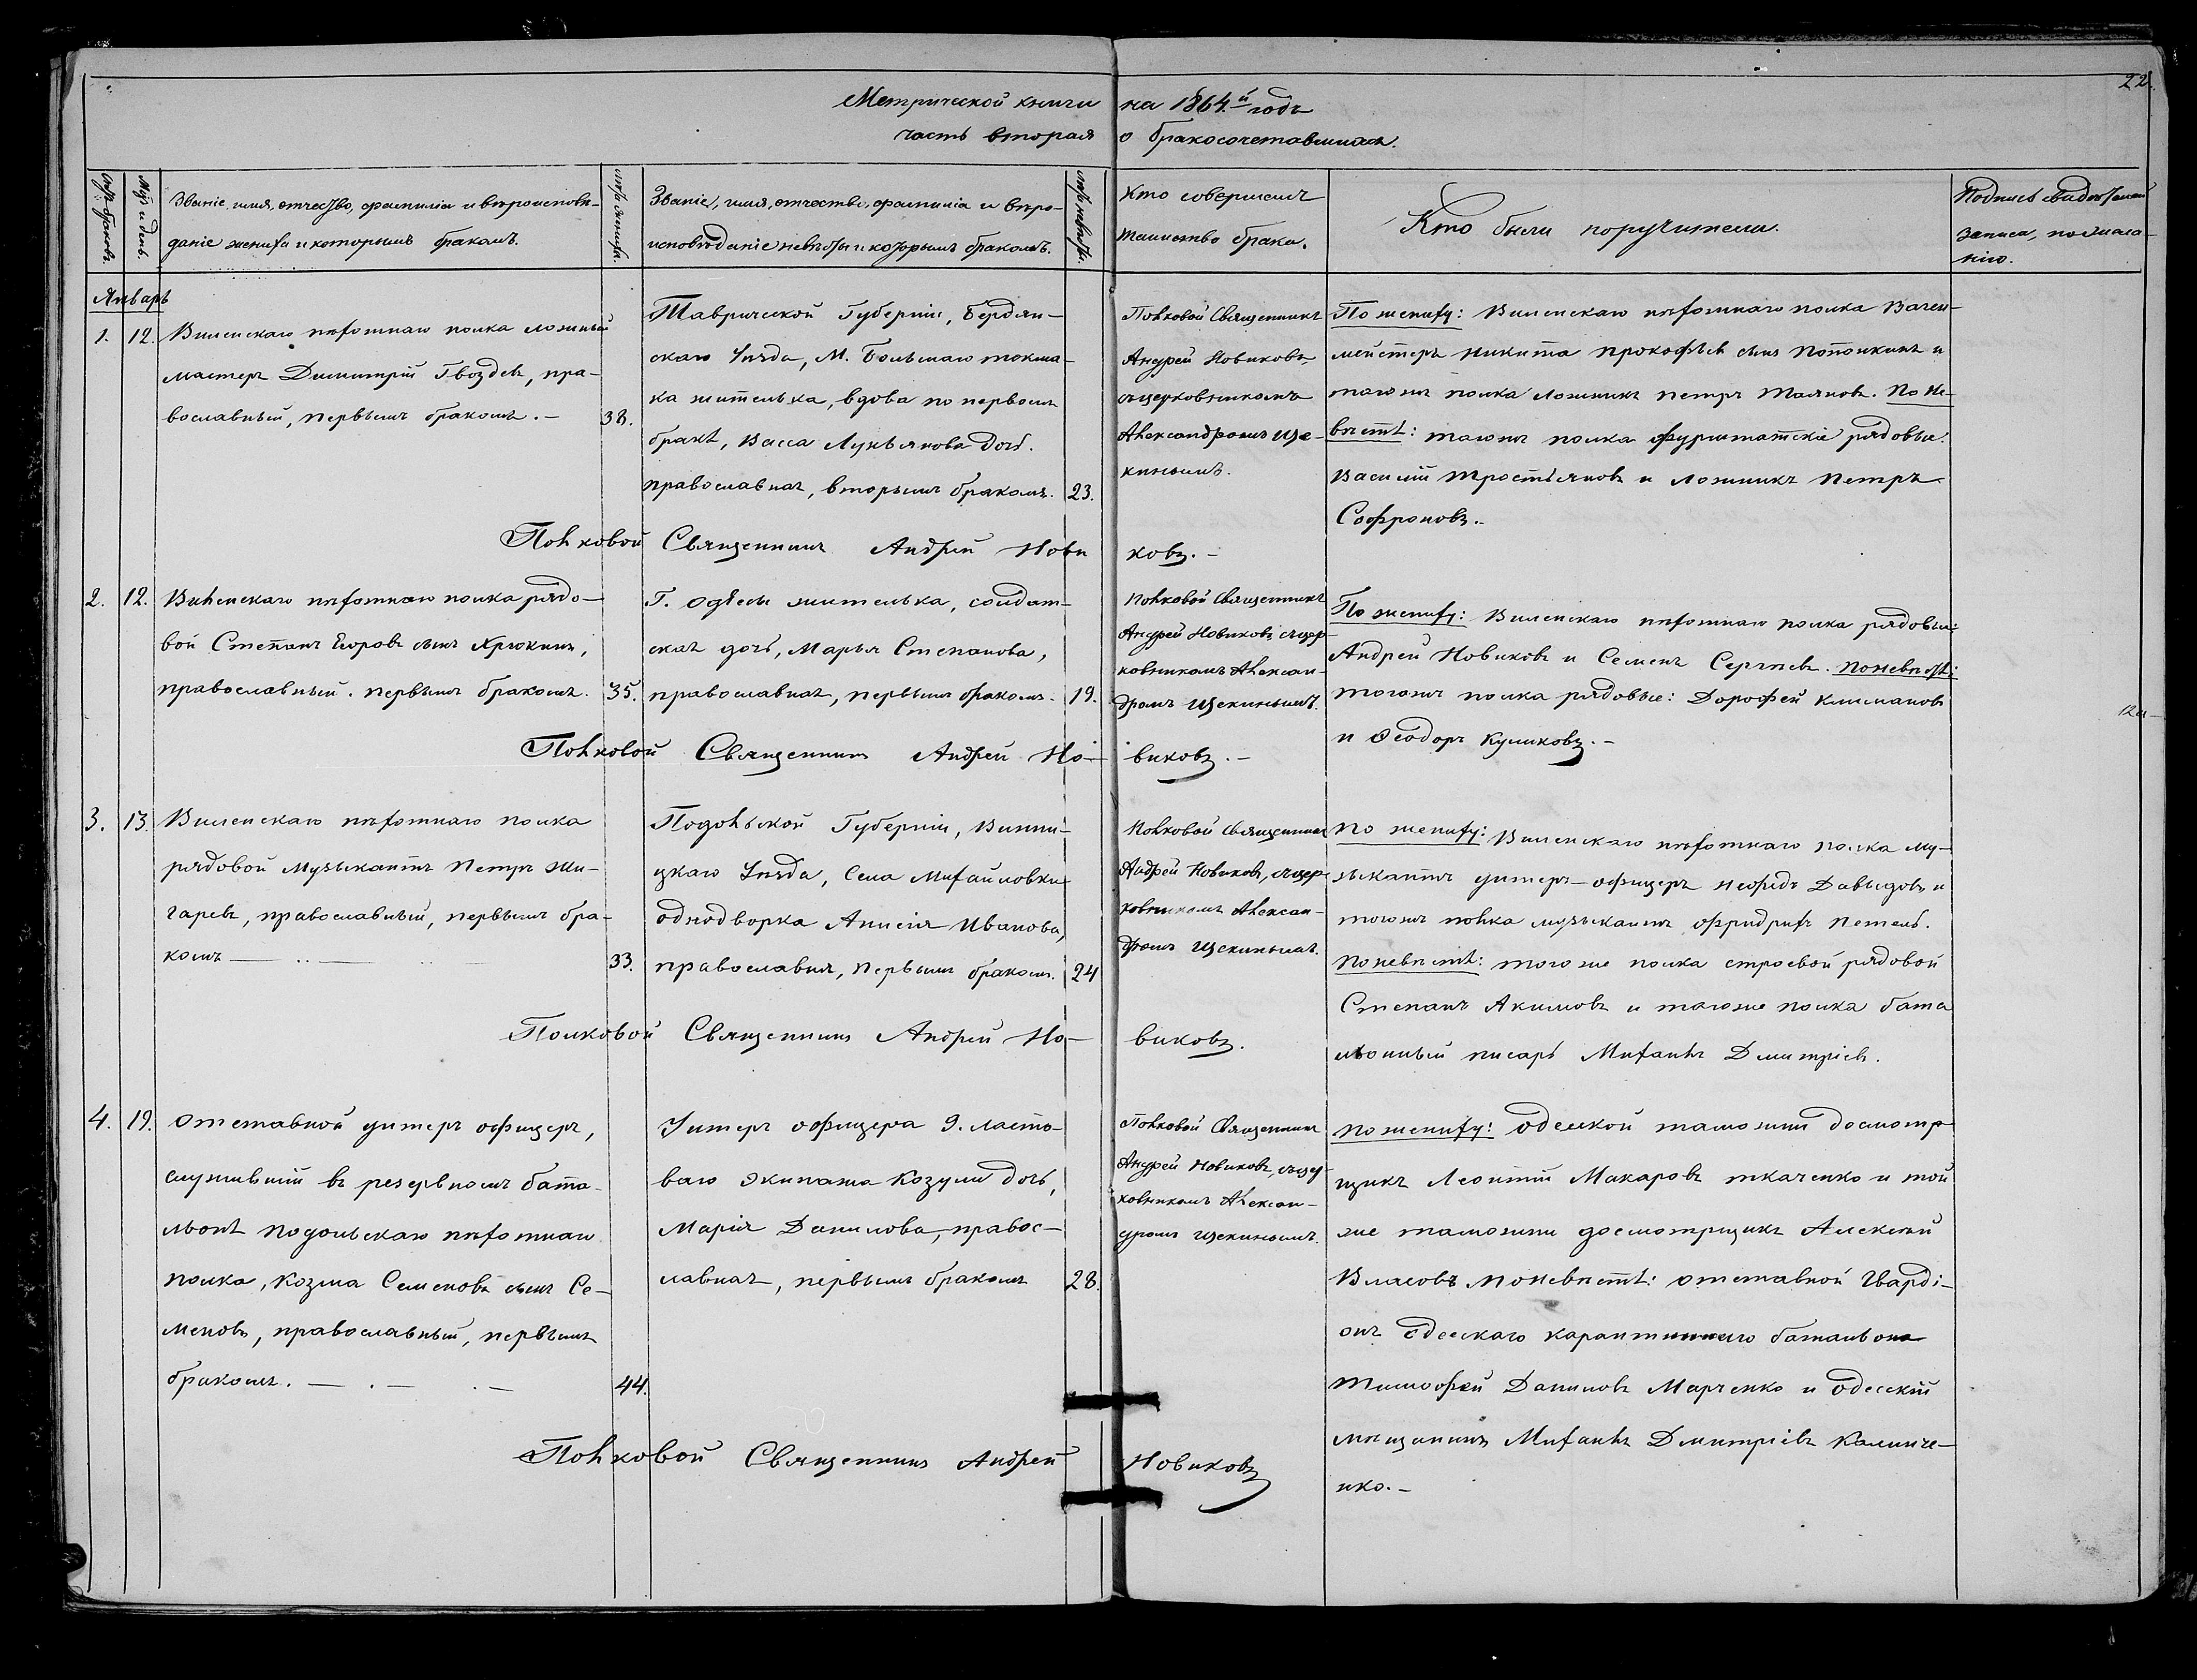 22.
Метрической книги на 1864.й годъ
часть вторая о бракосочетавшихся.
Счетъ браковъ.
Мѣс. и день.
Званіе, имя, отчество, фамилія и вѣроисповѣ-
даніе жениха и которымъ бракомъ.
лѣта жениха.
Званіе, имя, отчество, фамилія и вѣро-
исповѣданіе невѣсты и которымъ бракомъ.
лѣта невѣсты.
Кто совершилъ
таинство брака.
Кто были поручители.
Подпись свидѣтелей
записи, по желанію.
Январь
1. 12. Виленскаго пѣхотнаго полка ложный
мастеръ Димитрій Гвоздевъ, пра-
вославный, первымъ бракомъ.- 38.
Таврической Губерніи, Бердян-
скаго Уѣзда, М. Большаго токма-
ка жителька, вдова по первомъ
бракѣ, Васса Лукьянова дочь.
православная, вторымъ бракомъ. 23.
Полковой Священникъ
Андрей Новиковъ,
съ церковникомъ
Александромъ Ще-
кинымъ.
По жениху: Виленскаго пѣхотнаго полка Ваген-
мейстеръ Никита Прокофьевъ сынъ Потолкинъ и
тогожъ полка ложникъ Петръ Таяновъ. По не-
вѣстѣ: тогожъ полка фурштатскіе рядовые:
Василій Тростьяновъ и ложникъ Петръ
Софроновъ.-
Полковой Священникъ Андрей Новиковъ.-
2. 12. Виленскаго пѣхотнаго полка рядо-
вой Степанъ Егоровъ сынъ Хрюкинъ,
православный. первымъ бракомъ. 35.
Г. Одессы жителька, солдат-
ская дочь, Марья Степанова,
православная, первымъ бракомъ. 19.
Полковой Священникъ
Андрей Новиковъ съ цер-
ковникомъ Алексан-
дромъ Щекинымъ.
По жениху: Виленскаго пѣхотнаго полка рядовые:
Андрей Новиковъ и Семенъ Сергѣевъ. По невѣстѣ:
тогожъ полка рядовые: Дорофей Климановъ
и Ѳеодоръ Куликовъ.-
Полковой Священникъ Андрей Но-виковъ.-
3. 13. Виленскаго пѣхотнаго полка
рядовой Музыкантъ Петръ Жи-
гаревъ, православный, первымъ бра-
комъ 33.
Подольской Губерніи, Винни-
цкаго Уѣзда, Села Михайловки
однодворка Анисія Иванова,
православная, первымъ бракомъ. 24
Полковой Священникъ
Андрей Новиковъ, съ цер-
ковникомъ Алексан-
дромъ Щекинымъ.
По жениху: Виленскаго пѣхотнаго полка му-
зыкантъ унтеръ-офицеръ Неофидъ Давыдовъ и
тогожъ полка музыкантъ Фридрихъ Петель.
По невѣстѣ: тогоже полка строевой рядовой
Степанъ Акимовъ и тогоже полка бата
льонный писарь Михаилъ Дмитріевъ.
Полковой Священникъ Андрей Но-виковъ.
4. 19. Отставной унтеръ офицеръ,
служившій въ резервномъ бата-
льонѣ Подольскаго пѣхотнаго
полка, Козма Семеновъ сынъ Се-
меновъ, православный, первымъ
бракомъ. 44.
Унтеръ офицера 9. ласто-
ваго экипажа Козули дочь,
Марія Данилова, правос-
лавная, первымъ бракомъ 28.
Полковой Священникъ
Андрей Новиковъ, съ цер-
ковникомъ Алексан-
дромъ Щекинымъ.
По жениху: Одесской таможни досмотр
щикъ Леонтій Макаровъ Ткаченко и той
же таможни досмотрщикъ Алексѣй
Власовъ. По невѣстѣ: отставной Гварді-
онъ Одесскаго карантиннаго баталіона
Тимофей Даниловъ Марченко и Одесскій
мѣщанинъ Михаилъ Дмитріевъ Калиниче-
нко.-
Полковой Священникъ Андрей Новиковъ